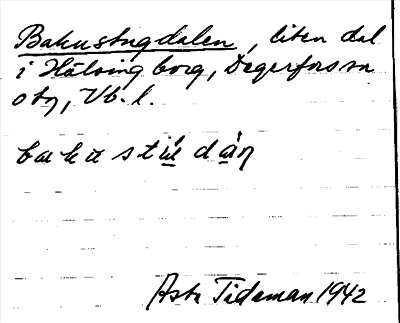 Bakustugdalen, liten dal
i Hälsingborg, Degerfors sn
otn, Vb. l.
bakastúdáɳ
Astr Tideman 1942